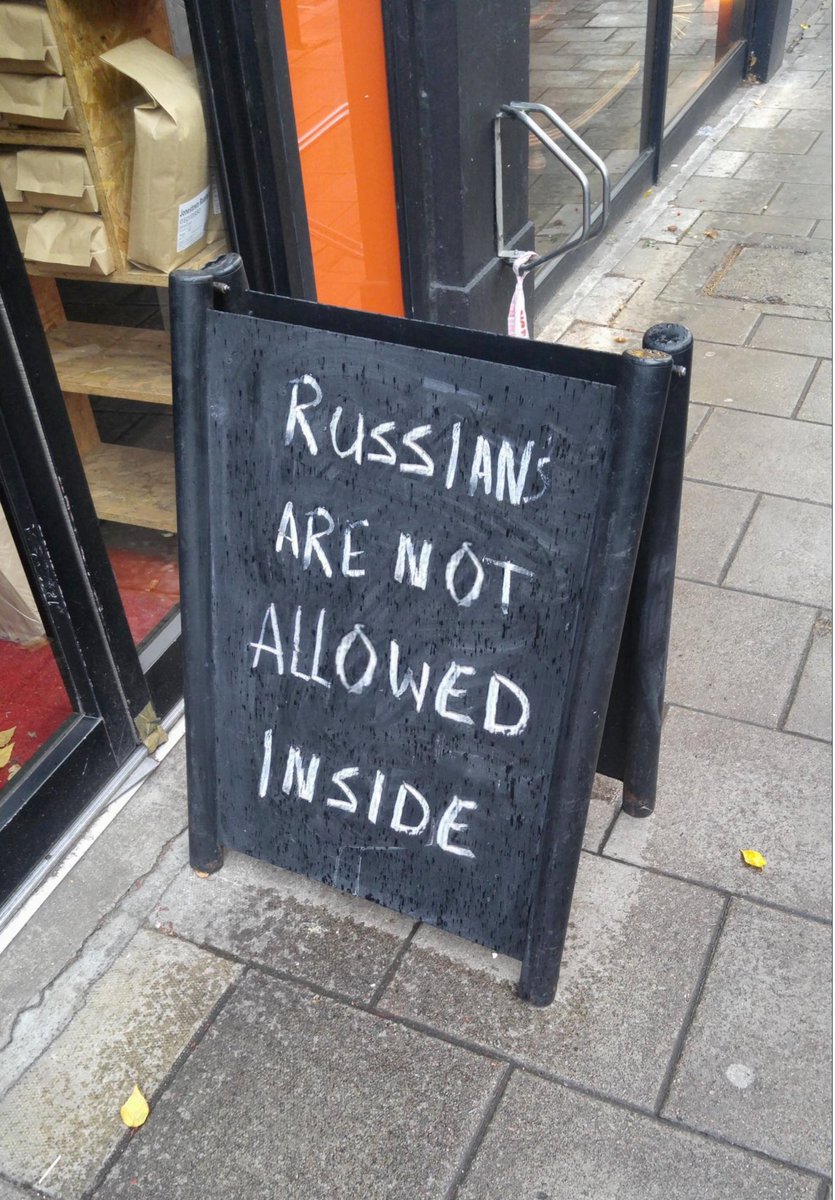 RUSSIAN'S
ARE NOT
ALLOWED
INSIDE